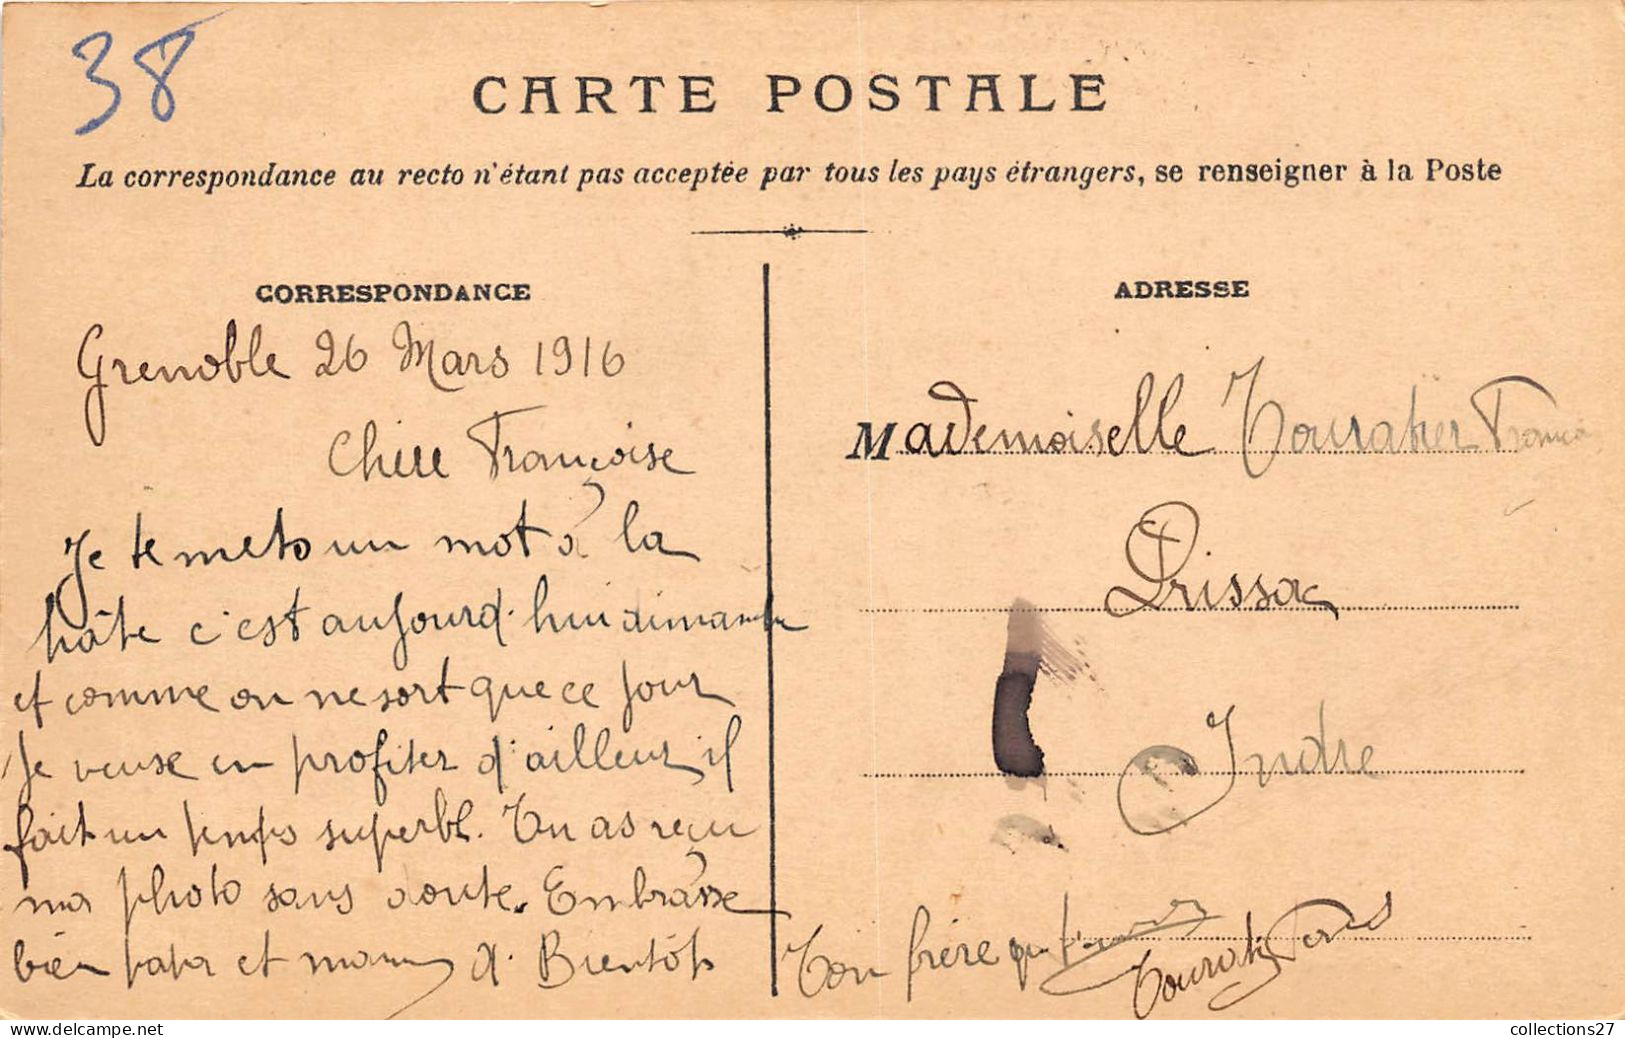 38
CARTE POSTALE
La correspondance au recto n'étant pas acceptée par tous les pays étrangers, se renseigner à la Poste
CORRESPONDANCE
Grenoble 26 Mars 1916
Chère Françoise
Je te mets un mot à la
hâte c'est aujourd'hui dimanche
et comme on ne sort que ce jour
Je veuse en profiter d'ailleur il
fait un temps superbe. Tu as reçu
ma photo sans doute. Embrasse
bien papa et maman A Bientôt
ADRESSE
Mademoiselle
Prissac
Indre
Ton frère qui t'aime
collections27